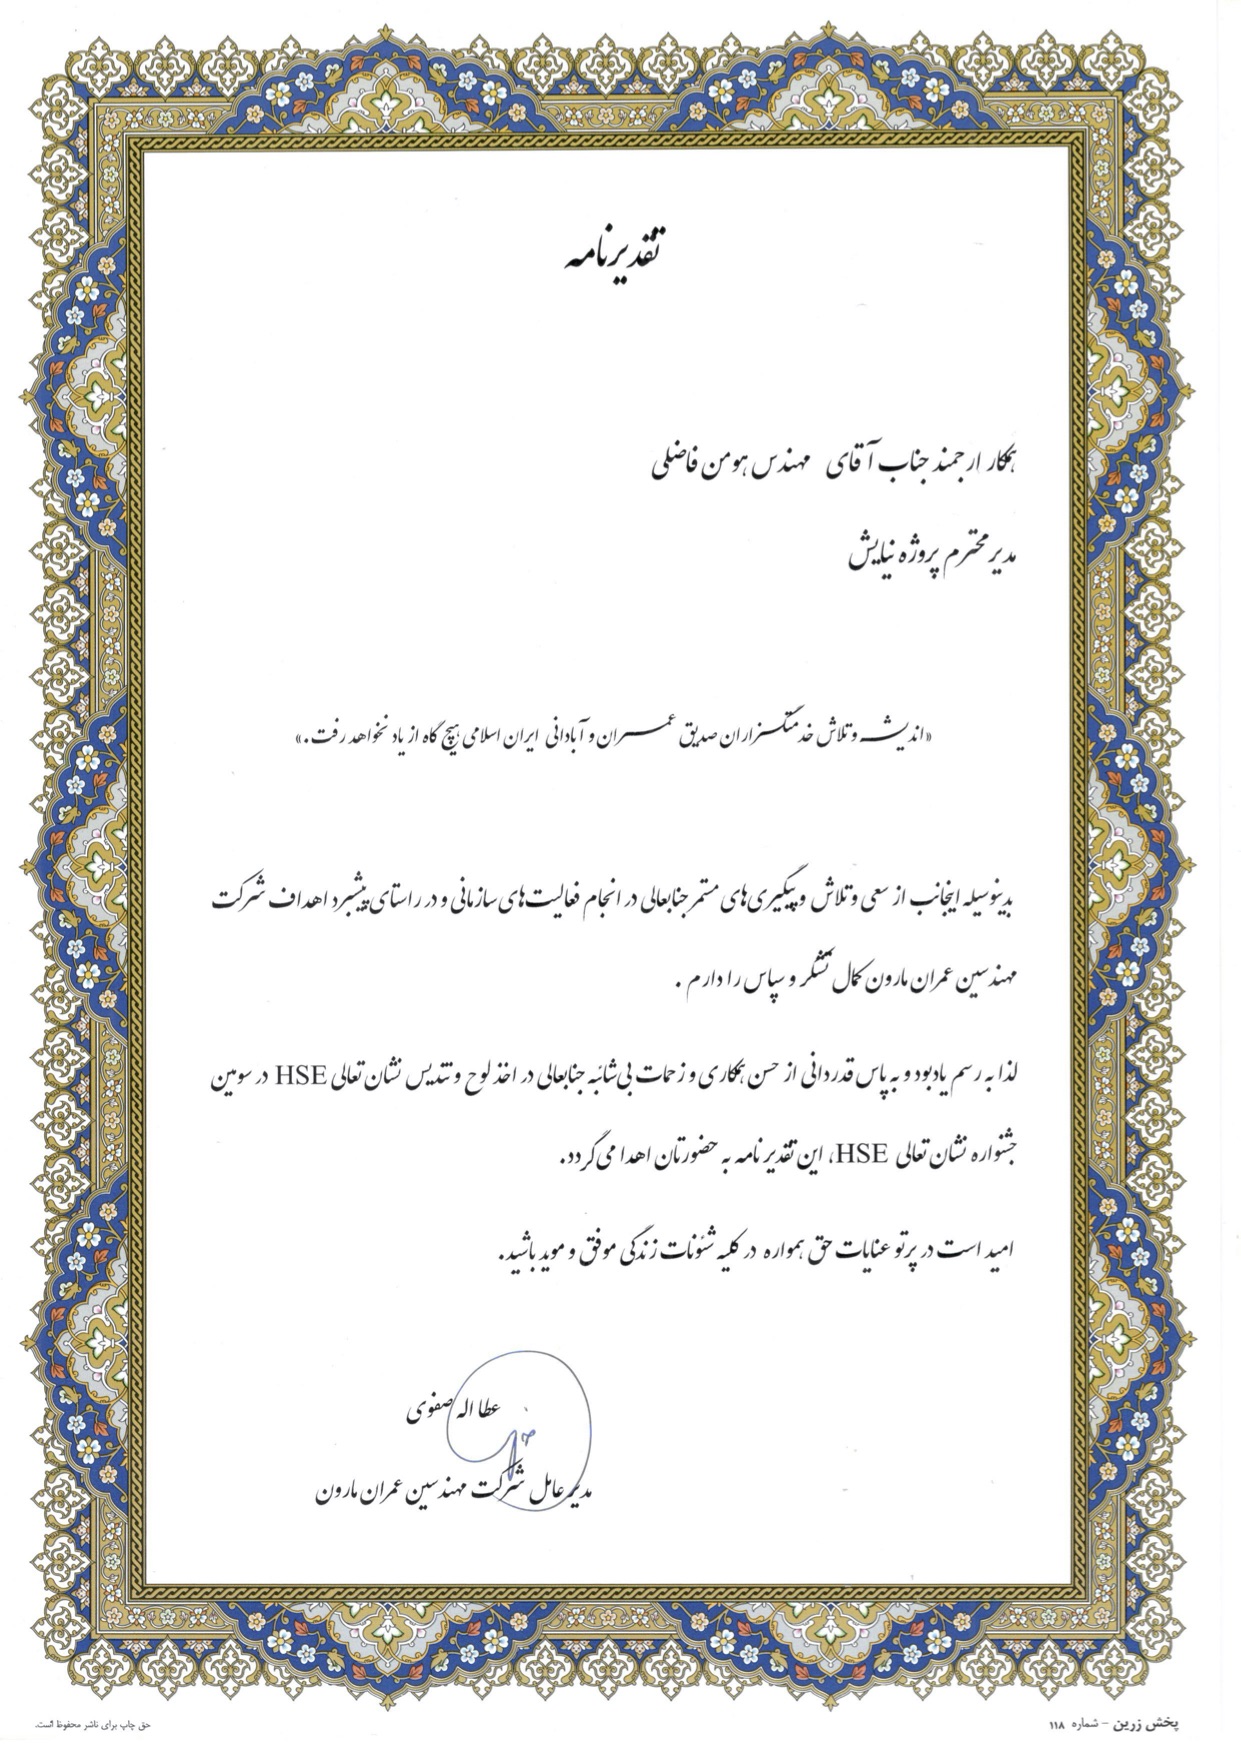 تقدیرنامه
همکار ارجمند جناب آقای مهندس هومن فاضلی
مدیر محترم پروژه نیایش
«اندیشه و تلاش خدمتگزاران صدیق عمران و آبادانی ایران اسلامی هیچ گاه از یاد نخواهد رفت.»
بدینوسیله اینجانب از سعی و تلاش و پیگیری‌های مستمر جنابعالی در انجام فعالیت‌های سازمانی و در راستای پیشبرد اهداف شرکت
مهندسین عمران مارون کمال تشکر و سپاس را دارم .
لذا به رسم یادبود و به پاس قدردانی از حسن همکاری و زحمات بی‌شائبه جنابعالی در اخذ لوح و تندیس نشان تعالی HSE در سومین
جشنواره نشان تعالی HSE، این تقدیر نامه به حضورتان اهدا می‌گردد.
امید است در پرتو عنایات حق همواره در کلیه شئونات زندگی موفق و موید باشید.
عطا اله صفوی
مدیر عامل شرکت مهندسین عمران مارون
پخش زرین – شماره ۱۱۸
حق چاپ برای ناشر محفوظ است.